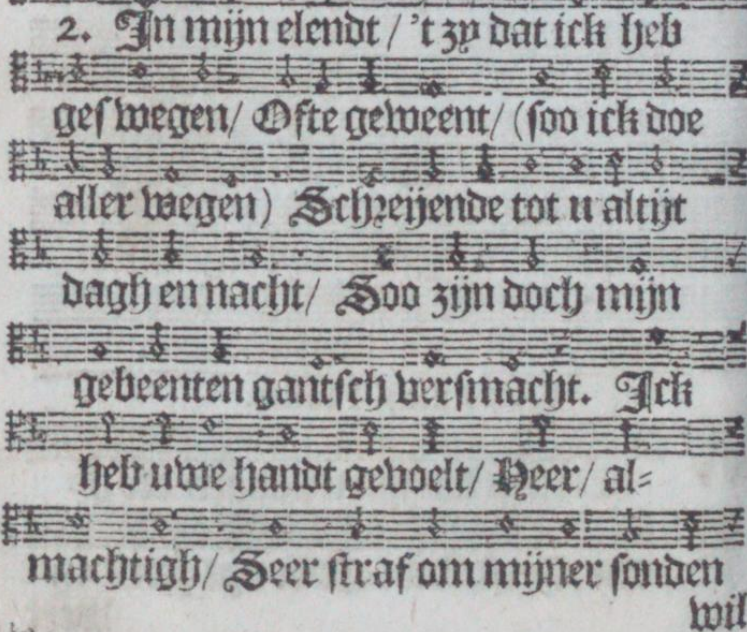 2. In mijn elendt / 't zy dat ick heb
geswegen/ Ofte geweent/ (soo ick doe
aller wegen) Schreijende tot u altijt
dagh en nacht/ Soo zijn doch mijn
gebeenten gantsch versmacht. Ick
heb uwe handt gevoelt/ Heer/ al⸗
machtigh/ Seer straf om mijner sonden
wil